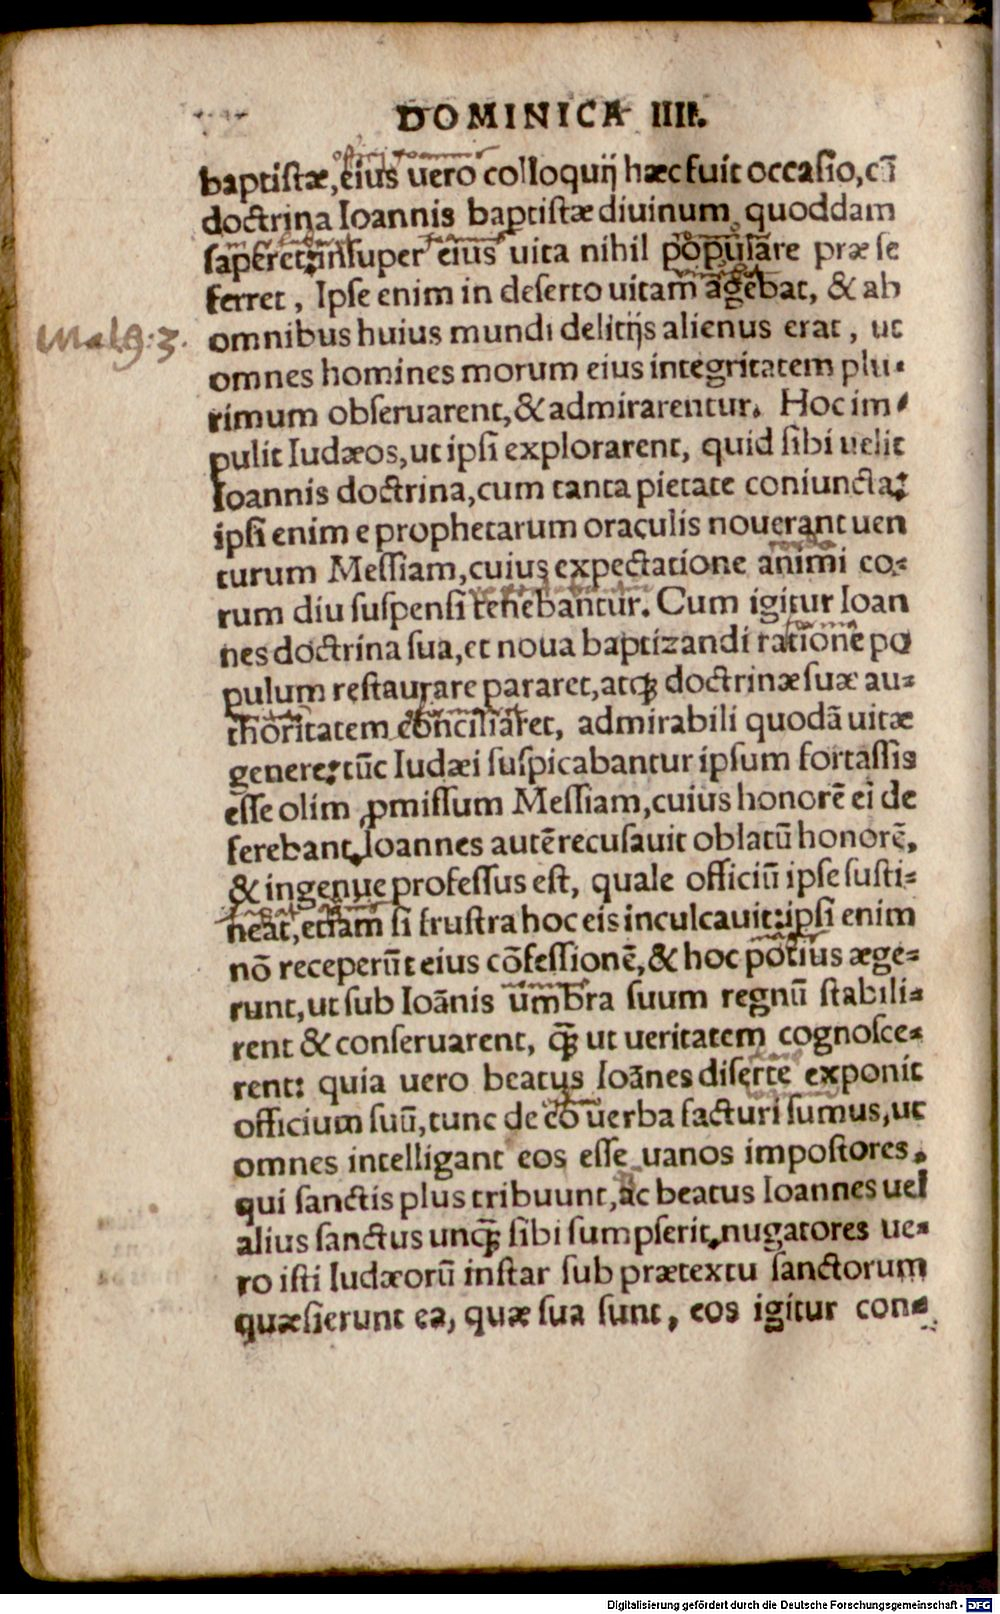 DOMINICA IIII.
baptistæ, eius uero colloquij hæc fuit occasio, cũ
doctrina Ioannis baptistæ diuinum quoddam
saperet: insuper eius uita nihil populare præ se
ferret, Ipse enim in deserto uitam agebat, & ab
omnibus huius mundi delitijs alienus erat, ut
omnes homines morum eius integritatem plu-
rimum obseruarent, & admirarentur. Hoc im-
pulit Iudæos, ut ipsi explorarent, quid sibi uelit
Ioannis doctrina, cum tanta pietate coniuncta:
ipsi enim e prophetarum oraculis nouerant uen
turum Messiam, cuius expectatione animi eo-
rum diu suspensi tenebantur. Cum igitur Ioan
nes doctrina sua, et noua baptizandi ratione po
pulum restaurare pararet, atqȝ doctrinæ suæ au-
thoritatem conciliaret, admirabili quodã uitæ
genere: tũc Iudæi suspicabantur ipsum fortassis
esse olim ꝓmissum Messiam, cuius honorẽ ei de
ferebant. Ioannes autẽ recusauit oblatũ honorẽ,
& ingenue professus est, quale officiũ ipse susti-
neat, etiam si frustra hoc eis inculcauit: ipsi enim
nõ receperũt eius cõfessionẽ, & hoc potius æge-
runt, ut sub Ioãnis umbra suum regnũ stabili-
rent & conseruarent, q̃ȝ ut ueritatem cognosce-
rent: quia uero beatus Ioãnes diserte exponit
officium suũ, tunc de eo uerba facturi sumus, ut
omnes intelligant eos esse uanos impostores,
qui sanctis plus tribuunt, ac beatus Ioannes uel
alius sanctus unq̃ȝ sibi sumpserit, nugatores ue-
ro isti Iudæorũ instar sub prætextu sanctorum
quæsierunt ea, quæ sua sunt, eos igitur con-
Digitalisierung gefördert durch die Deutsche Forschungsgemeinschaft - DFG